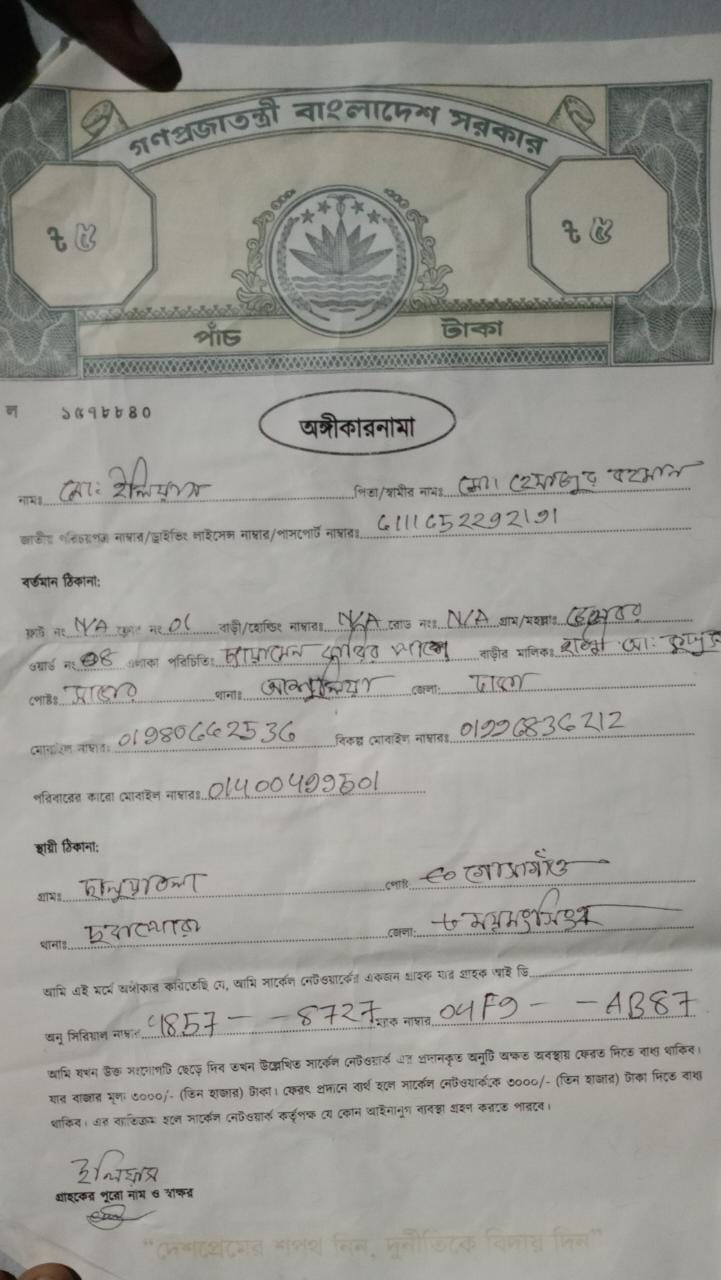 গণপ্রজাতন্ত্রী বাংলাদেশ সরকার
৳ ৫ ৳ ৫
পাঁচ টাকা
ল ১৫৭৮৮৪০
অঙ্গীকারনামা
নামঃ মো: ইলিয়াস পিতা/স্বামীর নামঃ মো। রহমান
জাতীয় পরিচয়পত্র নাম্বার/ড্রাইভিং লাইসেন্স নাম্বার/পাসপোর্ট নাম্বারঃ
বর্তমান ঠিকানা:
ফ্লাট নং N/A ফ্লোর নং 01 বাড়ী/হোল্ডিং নাম্বারঃ N/A রোড নংঃ N/A গ্রাম/মহল্লাঃ
ওয়ার্ড নং 08 এলাকা পরিচিতিঃ বাড়ীর মালিকঃ
পোষ্টঃ সাভার থানাঃ আশুলিয়া জেলা: ঢাকা
মোবাইল নাম্বারঃ 01980662536 বিকল্প মোবাইল নাম্বারঃ 01996836212
পরিবারের কারো মোবাইল নাম্বারঃ
স্থায়ী ঠিকানা:
গ্রামঃ পোষ্টঃ গোসাগাঁও
থানাঃ জেলা: ময়মনসিংহ
আমি এই মর্মে অঙ্গীকার করিতেছি যে, আমি সার্কেল নেটওয়ার্কের একজন গ্রাহক যার গ্রাহক আই ডি
অনু সিরিয়াল নাম্বার 4857 - - 8727 ম্যাক নাম্বার 04F9 - - AB87
আমি যখন উক্ত সংযোগটি ছেড়ে দিব তখন উল্লেখিত সার্কেল নেটওয়ার্ক এর প্রদানকৃত অনুটি অক্ষত অবস্থায় ফেরত দিতে বাধ্য থাকিব।
যার বাজার মূল্য ৩০০০/- (তিন হাজার) টাকা। ফেরৎ প্রদানে ব্যর্থ হলে সার্কেল নেটওয়ার্ককে ৩০০০/- (তিন হাজার) টাকা দিতে বাধ্য
থাকিব। এর ব্যতিক্রম হলে সার্কেল নেটওয়ার্ক কর্তৃপক্ষ যে কোন আইনানুগ ব্যবস্থা গ্রহণ করতে পারবে।
ইলিয়াস
গ্রাহকের পুরো নাম ও স্বাক্ষর
“দেশপ্রেমের শপথ নিন, দুর্নীতিকে বিদায় দিন”